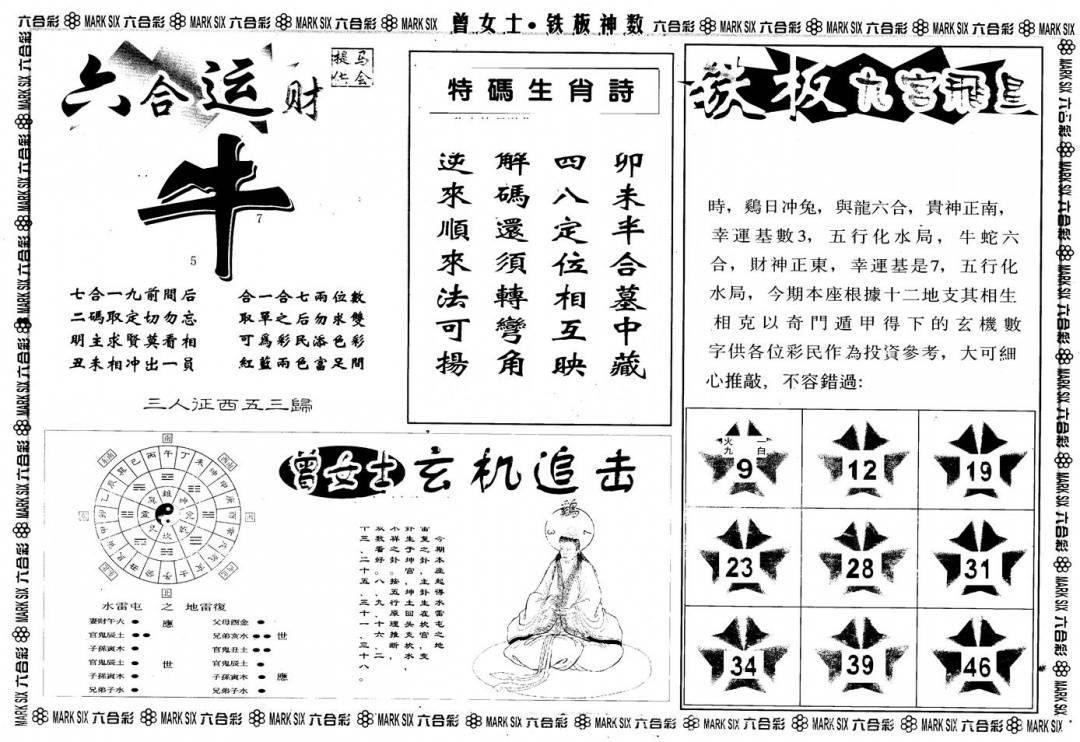 六合彩 MARK SIX 六合彩 MARK SIX 六合彩 MARK SIX 六合彩 MARK SIX 曾女士•铁板神数 六合彩 MARK SIX 六合彩 MARK SIX 六合彩 MARK SIX 六合彩 MARK SIX
六合运财
马会
提供
牛
7
5
七合一九前間后
二碼取定切勿忘
明主求賢莫看相
丑未相冲出一員
合一合七兩位數
取單之后勿求雙
可為彩民添色彩
紅藍兩色富足間
三人征西五三歸
特碼生肖詩
卯未半合墓中藏
四八定位相互映
解碼還須轉彎角
逆來順來法可揚
铁板九宫飛星
時，鷄日冲兔，與龍六合，貴神正南，
幸運基數3，五行化水局，牛蛇六
合，財神正東，幸運基是7，五行化
水局，今期本座根據十二地支其相生
相克以奇門遁甲得下的玄機數
字供各位彩民作為投資參考，大可細
心推敲，不容錯過:
火九 一白
9 12 19
23 28 31
34 39 46
曾女士玄机追击
鷄
3 7
水雷屯 之 地雷復
妻財午火 應 父母酉金
官鬼辰土 兄弟亥水 世
子孫寅木 官鬼丑土
官鬼辰土 世 官鬼辰土
子孫寅木 子孫寅木 應
兄弟子水 兄弟子水
MARK SIX 六合彩 MARK SIX 六合彩 MARK SIX 六合彩 MARK SIX 六合彩 MARK SIX 六合彩 MARK SIX 六合彩 MARK SIX 六合彩 MARK SIX 六合彩 MARK SIX 六合彩 MARK SIX